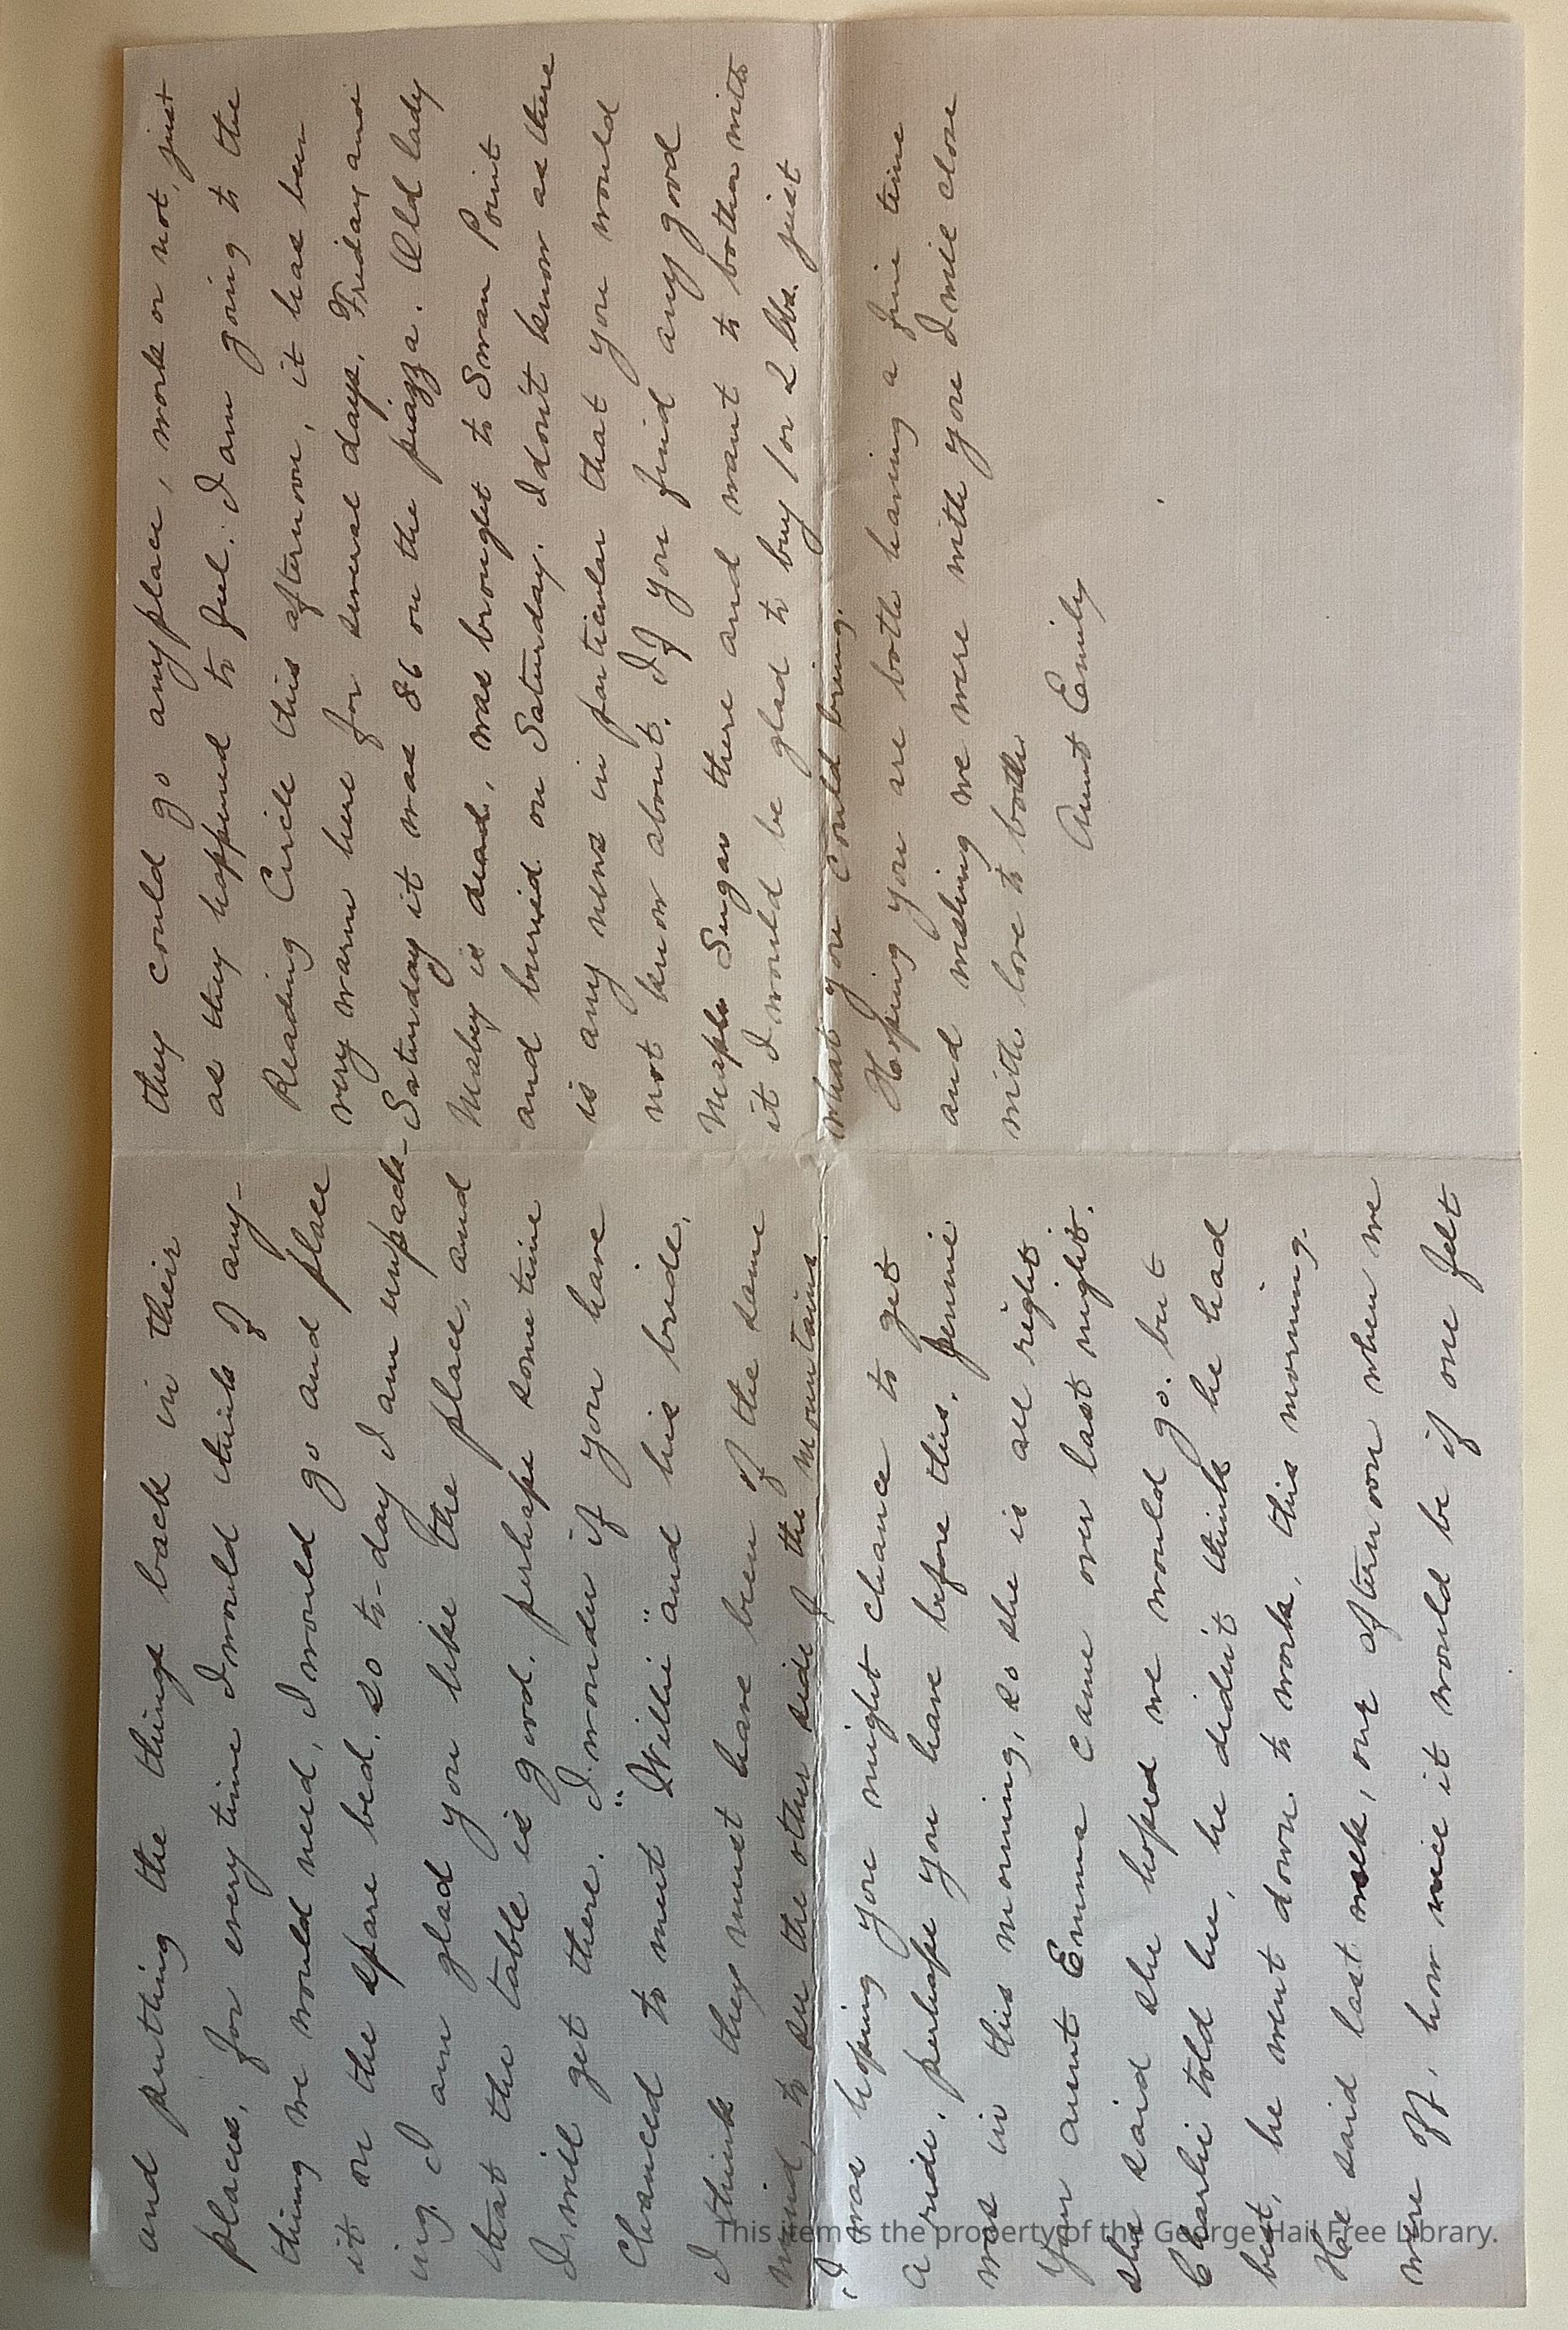 and putting the things back in their
places, for every time I would think of any-
thing we would need, I would go and place
it on the spare bed. so to-day I am unpack-
ing. I am glad you like the place, and
that the table is good. perhaps some time
I will get there. I wonder if you have
chanced to meet "Willie" and his bride,
I think they must have been of the same
mind, to see the other side of the mountains.
I was hoping you might chance to get
a ride, perhaps you have before this. Jennie
was in this morning, so she is all right
Your aunt Emma came over last night.
she said she hoped we would go. but
Charlie told her, he didn't think he had
best, he went down to work, this morning.
He said last week, one afternoon when we
were off, how nice it would be if one felt
they could go anyplace, work or not, just
as they happened to feel. I am going to the
Reading Circle this afternoon, it has been
very warm here for several days, Friday and
Saturday it was 86 on the piazza. Old lady
Maby is dead, was brought to Swan Point
and buried on Saturday. I don't know as there
is any news in particular that you would
not know about. If you find any good
Maple Sugar there and want to bother with
it I would be glad to buy 1 or 2 lbs. just
what you could bring.
Hoping you are both having a fine time
and wishing we were with you I will close
with love to both
Aunt Emily
This item is the property of the George Hail Free Library.